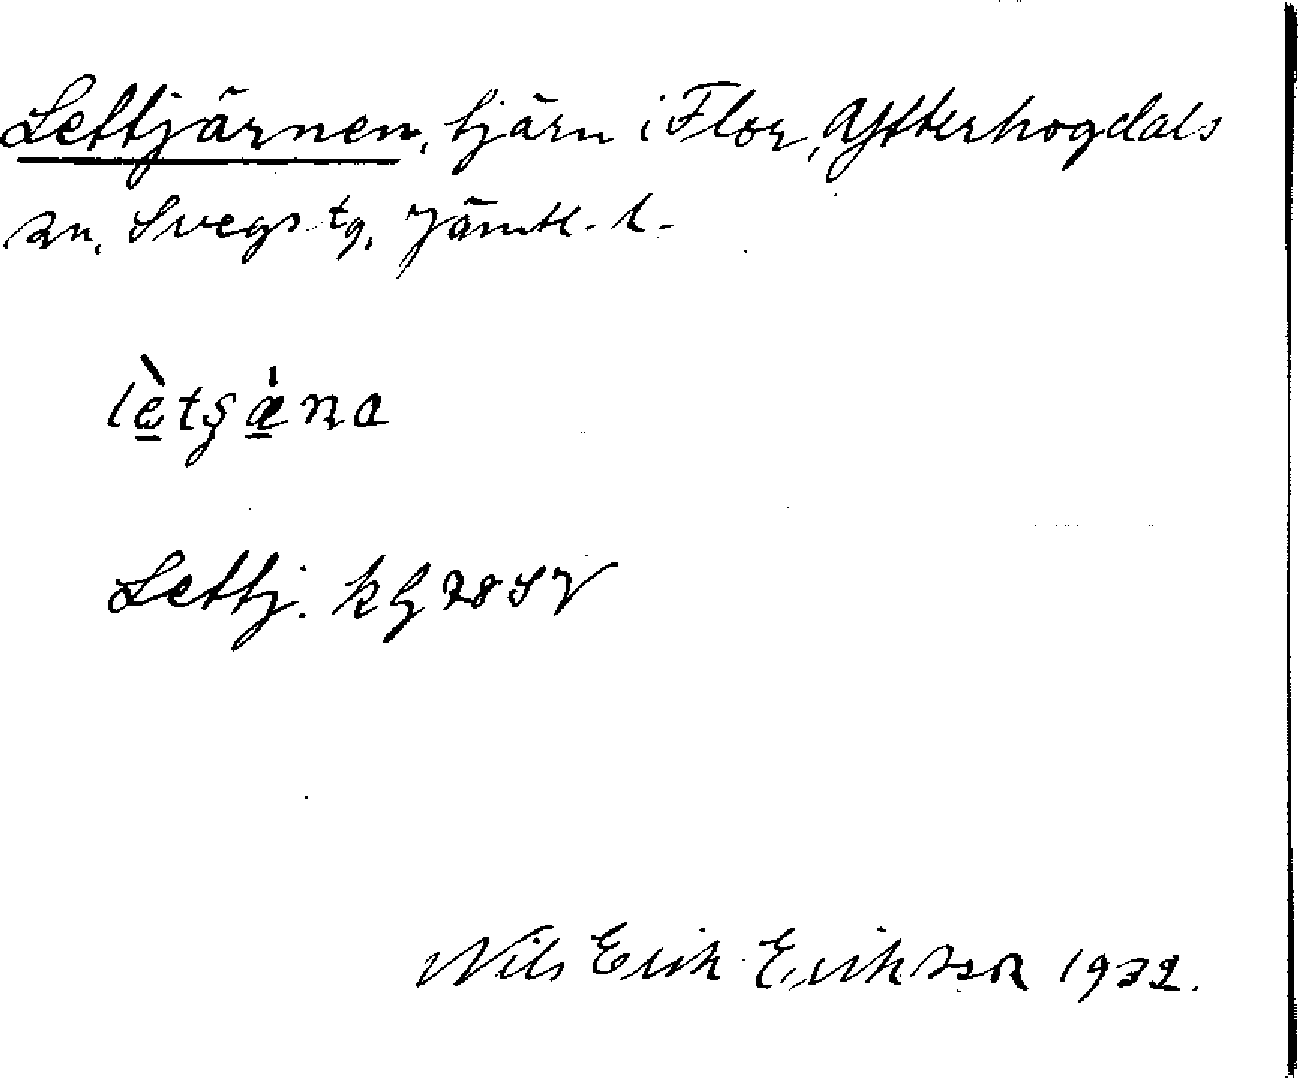 Lettjärnen, tjärn i Flor, Ytterhogdals
sn, Svegs tg, Jämtl. l.
Lettj. k G 28 S V
Nils Erik Eriksson 1932.